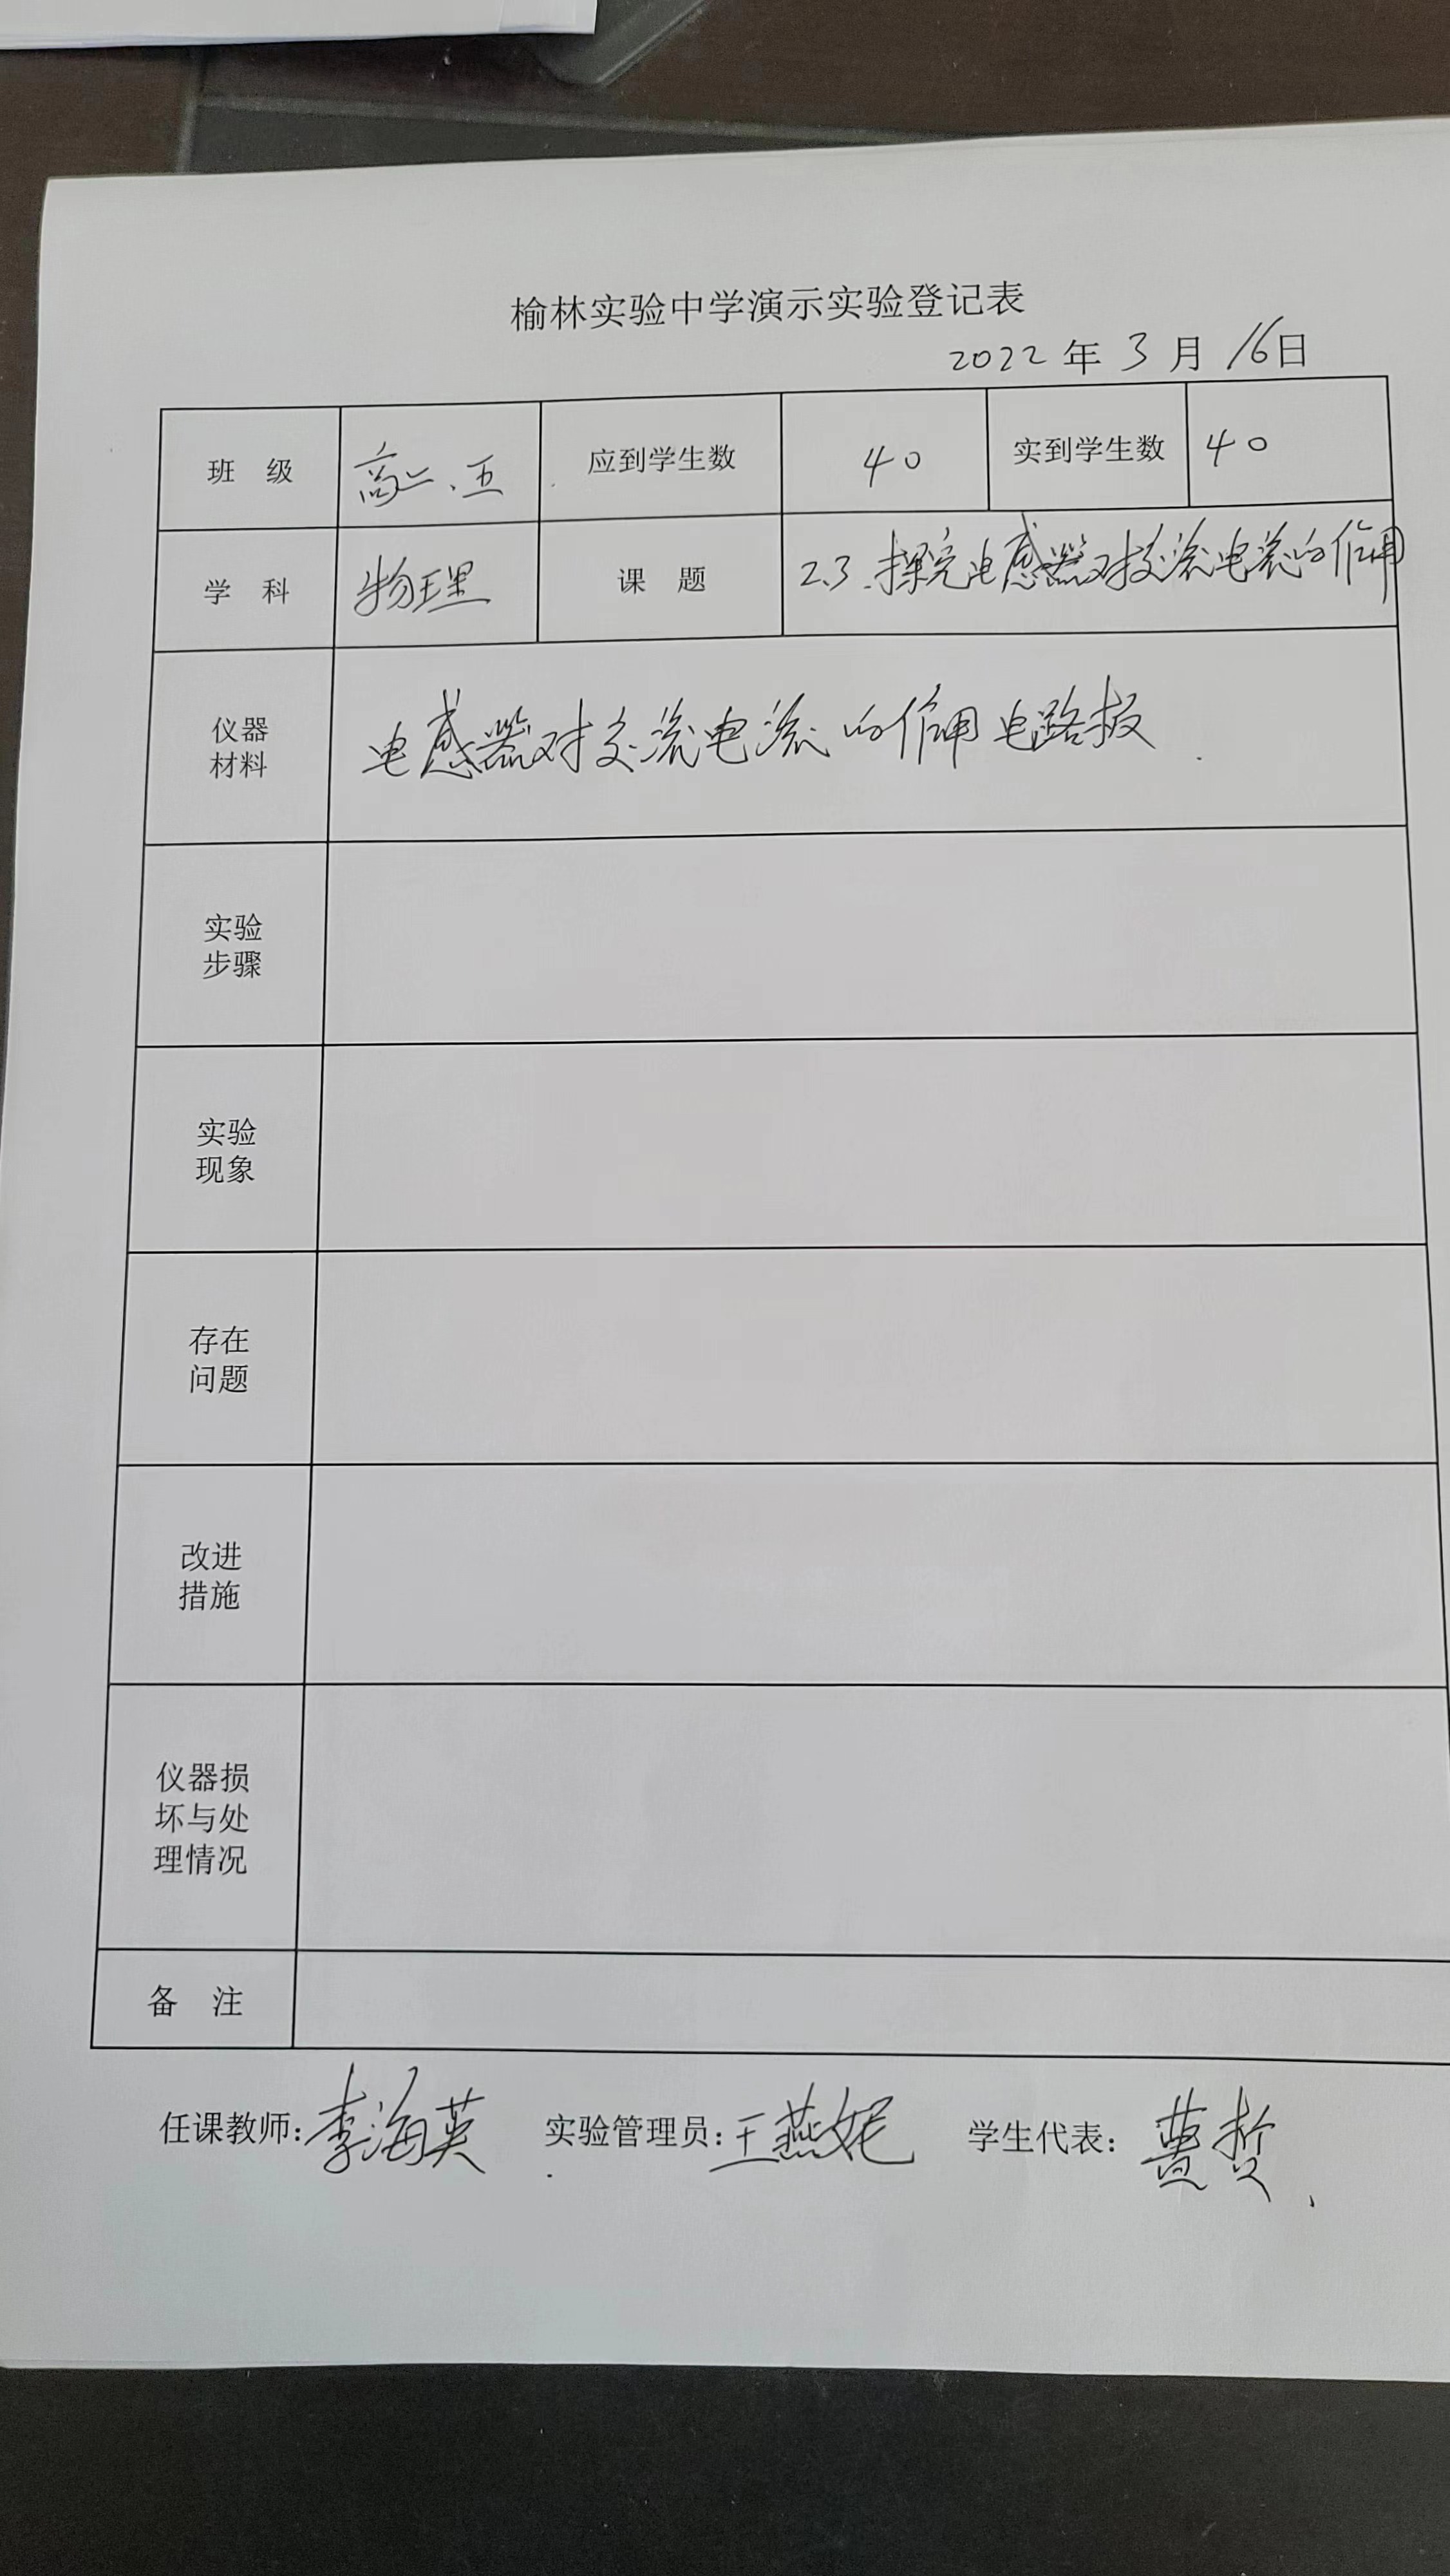 榆林实验中学演示实验登记表
2022年3月16日
班 级 高二.五 应到学生数 40 实到学生数 40
学 科 物理 课 题 2.3.探究电感器对交流电流的作用
仪器
材料
电感器对交流电流的作用电路板.
实验
步骤
实验
现象
存在
问题
改进
措施
仪器损
坏与处
理情况
备 注
任课教师:李海英 实验管理员:王燕妮 学生代表:曹哲